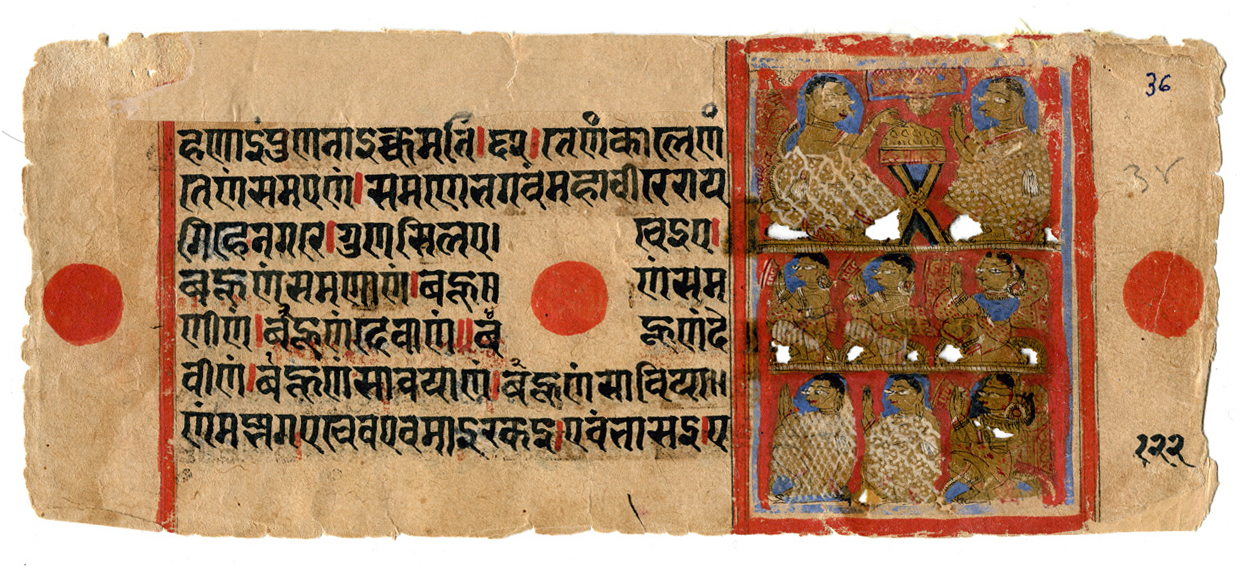 हणाइं पुण नाइक्कमंति । । तेणं कालेणं
तेणं समएणं । समणे भगवं महावीरे राय
गिहे नगरे । गुणसिलए। चेइए ।
बहूणं समणाणं । बहूण णं सम
णीणं । बहूणं देवाणं ॥ बहूणं दे
वीणं । बहूणं सावयाणं । बहूणं साविया॥
णं मज्झगए चेव एवमाइरकइ । एवं भासइ । ए
36
१२२